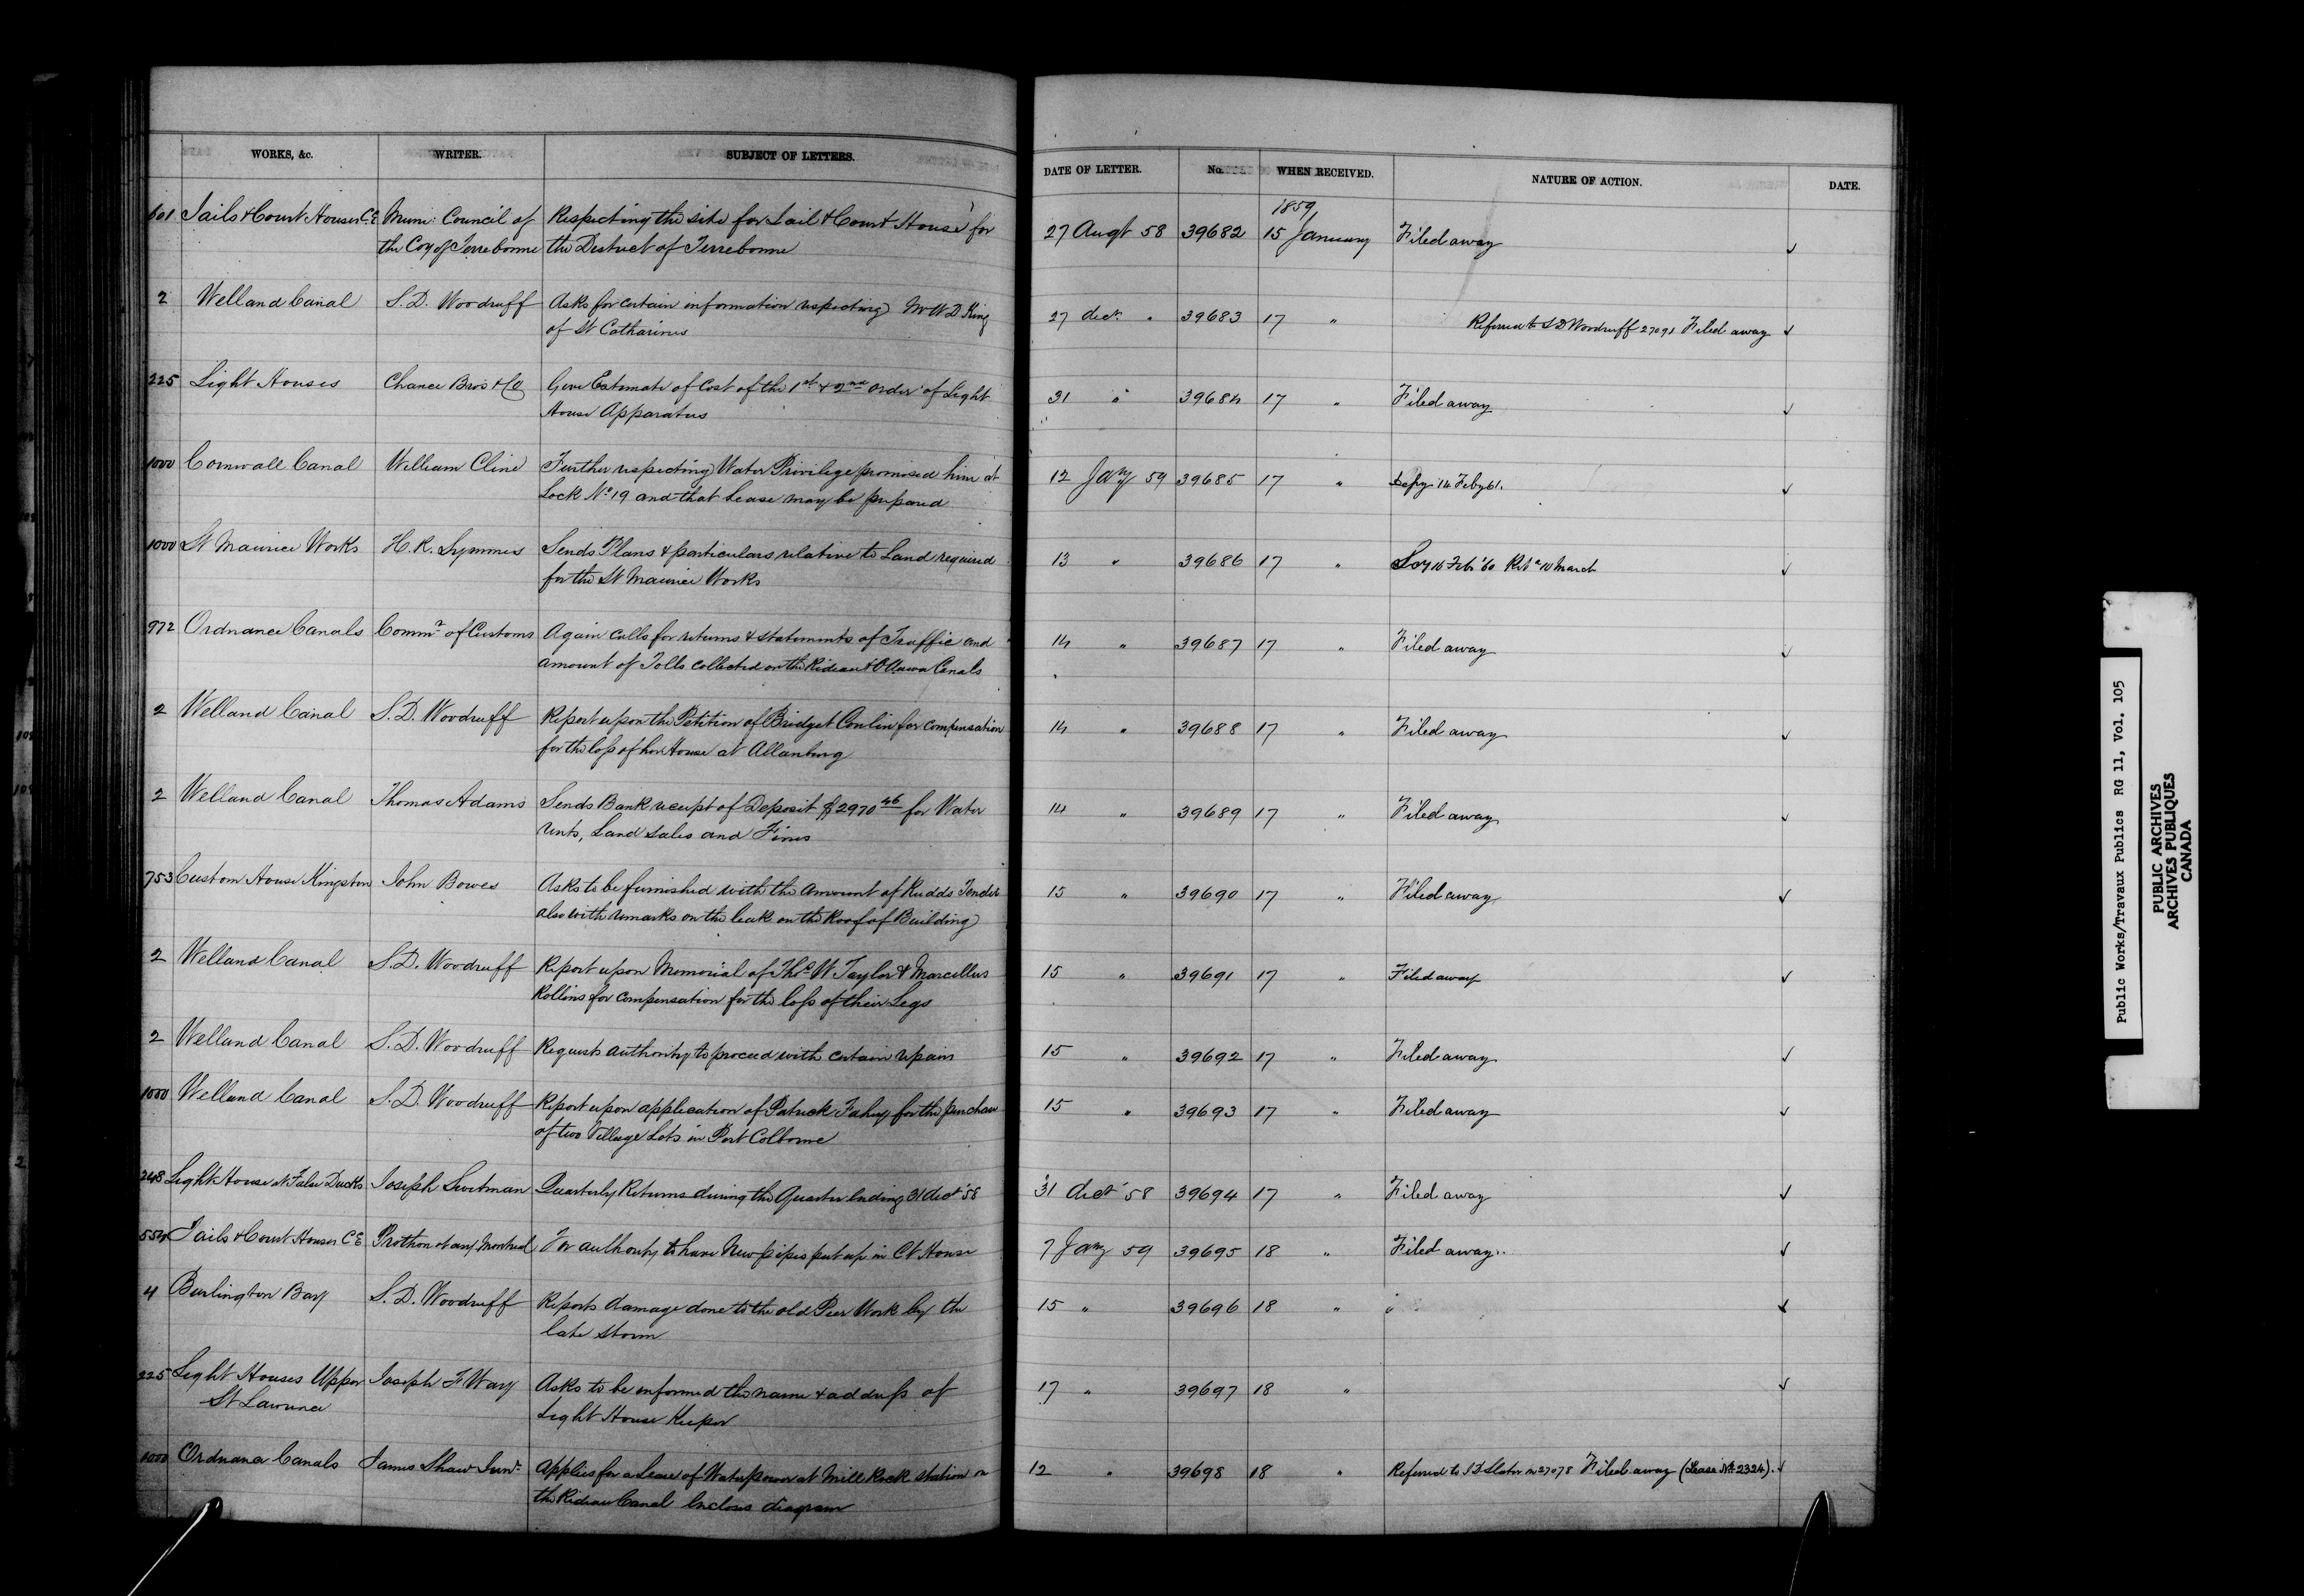 WORKS, &c. WRITER. SUBJECT OF LETTERS. DATE OF LETTER. No. WHEN RECEIVED. NATURE OF ACTION. DATE.
1859
601 Jails & Court Houses C.E. Muni: Council of Respecting the site for Jail & Court House for 27 Augt 58 39682 15 January Filed away
the Coy of Terrebonne the District of Terrebonne
2 Welland Canal S.D. Woodruff Asks for certain information respecting Mr W D King 27 dec. " 39683 17 " Referred to S D Woodruff 27091 Filed away
of St Catharines
225 Light Houses Chance Bros & Co Give Estimate of Cost of the 1st & 2nd order of Light 31 " 39684 17 " Filed away
House Apparatus
1000 Cornwall Canal William Cline Further respecting Water Privilege promised him at 12 Jany 59 39685 17 " 14 Feby 61.
Lock No 19 and that Lease may be prepared
1000 St Maurice Works H.R. Symmes Sends Plans & particulars relative to Land required 13 " 39686 17 " 16 Feb '60 10 March
for the St Maurice Works
972 Ordnance Canals Commr of Customs Again calls for returns & statements of Traffic and 14 " 39687 17 " Filed away
amount of Tolls collected on the Rideau & Ottawa Canals
2 Welland Canal S.D. Woodruff Report upon the Petition of Bridget Conlin for compensation 14 " 39688 17 " Filed away
for the loss of her House at Allanburg
2 Welland Canal Thomas Adams Sends Bank receipt of Deposit $2970 46 for Water 14 " 39689 17 " Filed away
rents, Land sales and Fines
753 Custom House Kingston John Bowes Asks to be furnished with the amount of Rudds Tender 15 " 39690 17 " Filed away
also with remarks on the leak on the Roof of Building
2 Welland Canal S.D. Woodruff Report upon Memorial of Thos W Taylor & Marcellus 15 " 39691 17 " Filed away
Rollins for compensation for the loss of their Legs
2 Welland Canal S.D. Woodruff Requests authority to proceed with certain repairs 15 " 39692 17 " Filed away
1000 Welland Canal S.D. Woodruff Report upon application of Patrick Fahey for the purchase 15 " 39693 17 " Filed away
of two Village Lots in Port Colborne
248 Light House at False Ducks Joseph Swetman Quarterly Returns during the Quarter ending 31 dect 58 31 dect 58 39694 17 " Filed away
554 Jails & Court Houses C E Prothonotary Montreal For authority to have New pipes put up in Ct House 7 Jany 59 39695 18 " Filed away
4 Burlington Bay S.D. Woodruff Reports damage done to the old Pier Work by the 15 " 39696 18 " "
late storm
225 Light Houses Upper Joseph F Way Asks to be informed the name & address of 17 " 39697 18 "
St Lawrence Light House Keeper
1000 Ordnance Canals James Shaw Junr Applies for a Lease of Waterpower at Mill Rock station on 12 " 39698 18 " Referred to J D Slater in 27078 Filed away (Lease No 2324).
the Rideau Canal Incloses diagram
Public Works/Travaux Publics RG 11, Vol. 105
PUBLIC ARCHIVES
ARCHIVES PUBLIQUES
CANADA